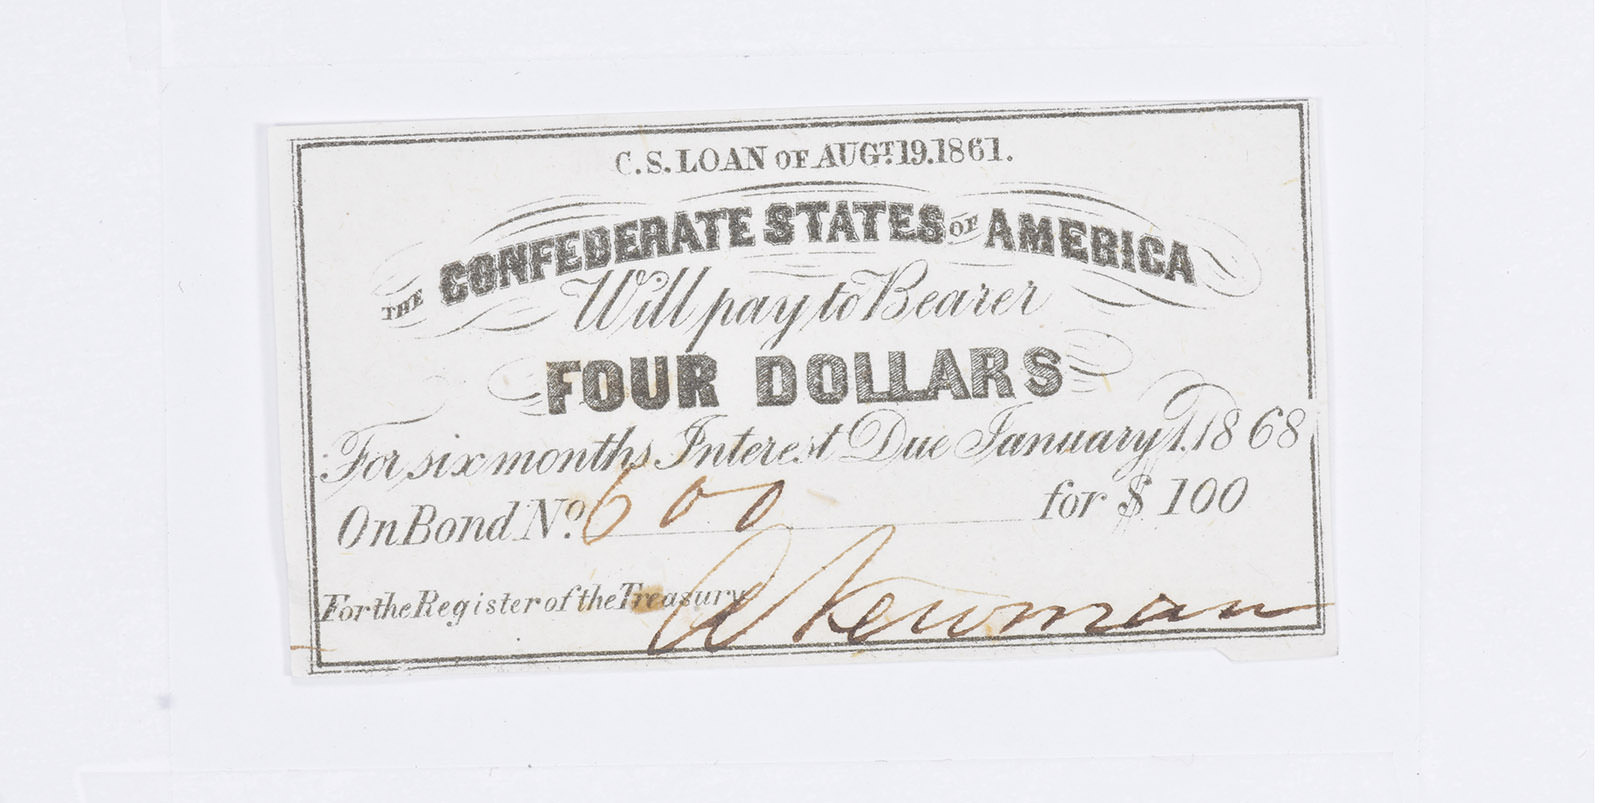 C.S. LOAN OF AUGT. 19. 1861.
THE CONFEDERATE STATES OF AMERICA
Will pay to Bearer
FOUR DOLLARS
For six months Interest Due January 1, 1868
On Bond No. 600 for $ 100
For the Register of the Treasury Newman